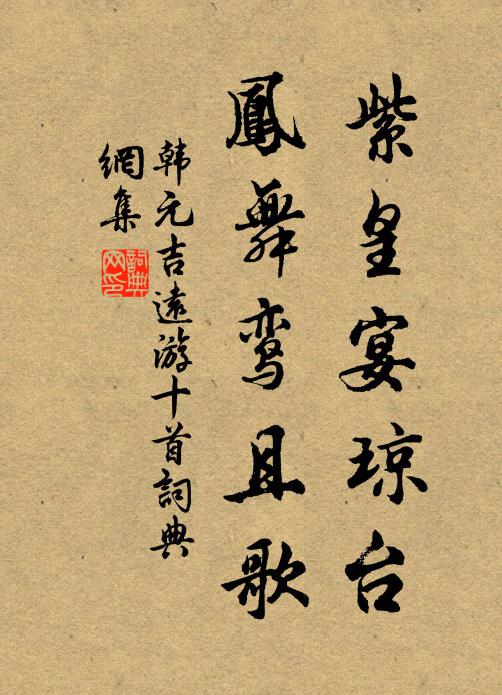 紫皇宴琼台
鳳舞鸾且歌
韩元吉遠游十首詞典
網集
詞典网印